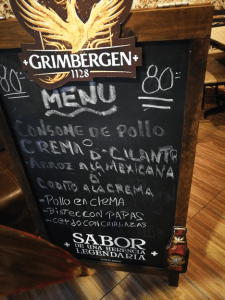 GRIMBERGEN
1128
80= 80=
MENU
CONSOME DE POLLO
O
CREMA D- CILANTRO
-ARROZ A LA MEXICANA
O
CODITO A LA CREMA
-POLLO EN CREMA
-BISTEC CON PAPAS
-CERDO CON CALABAZAS
SABOR
DE UNA HERENCIA
LEGENDARIA